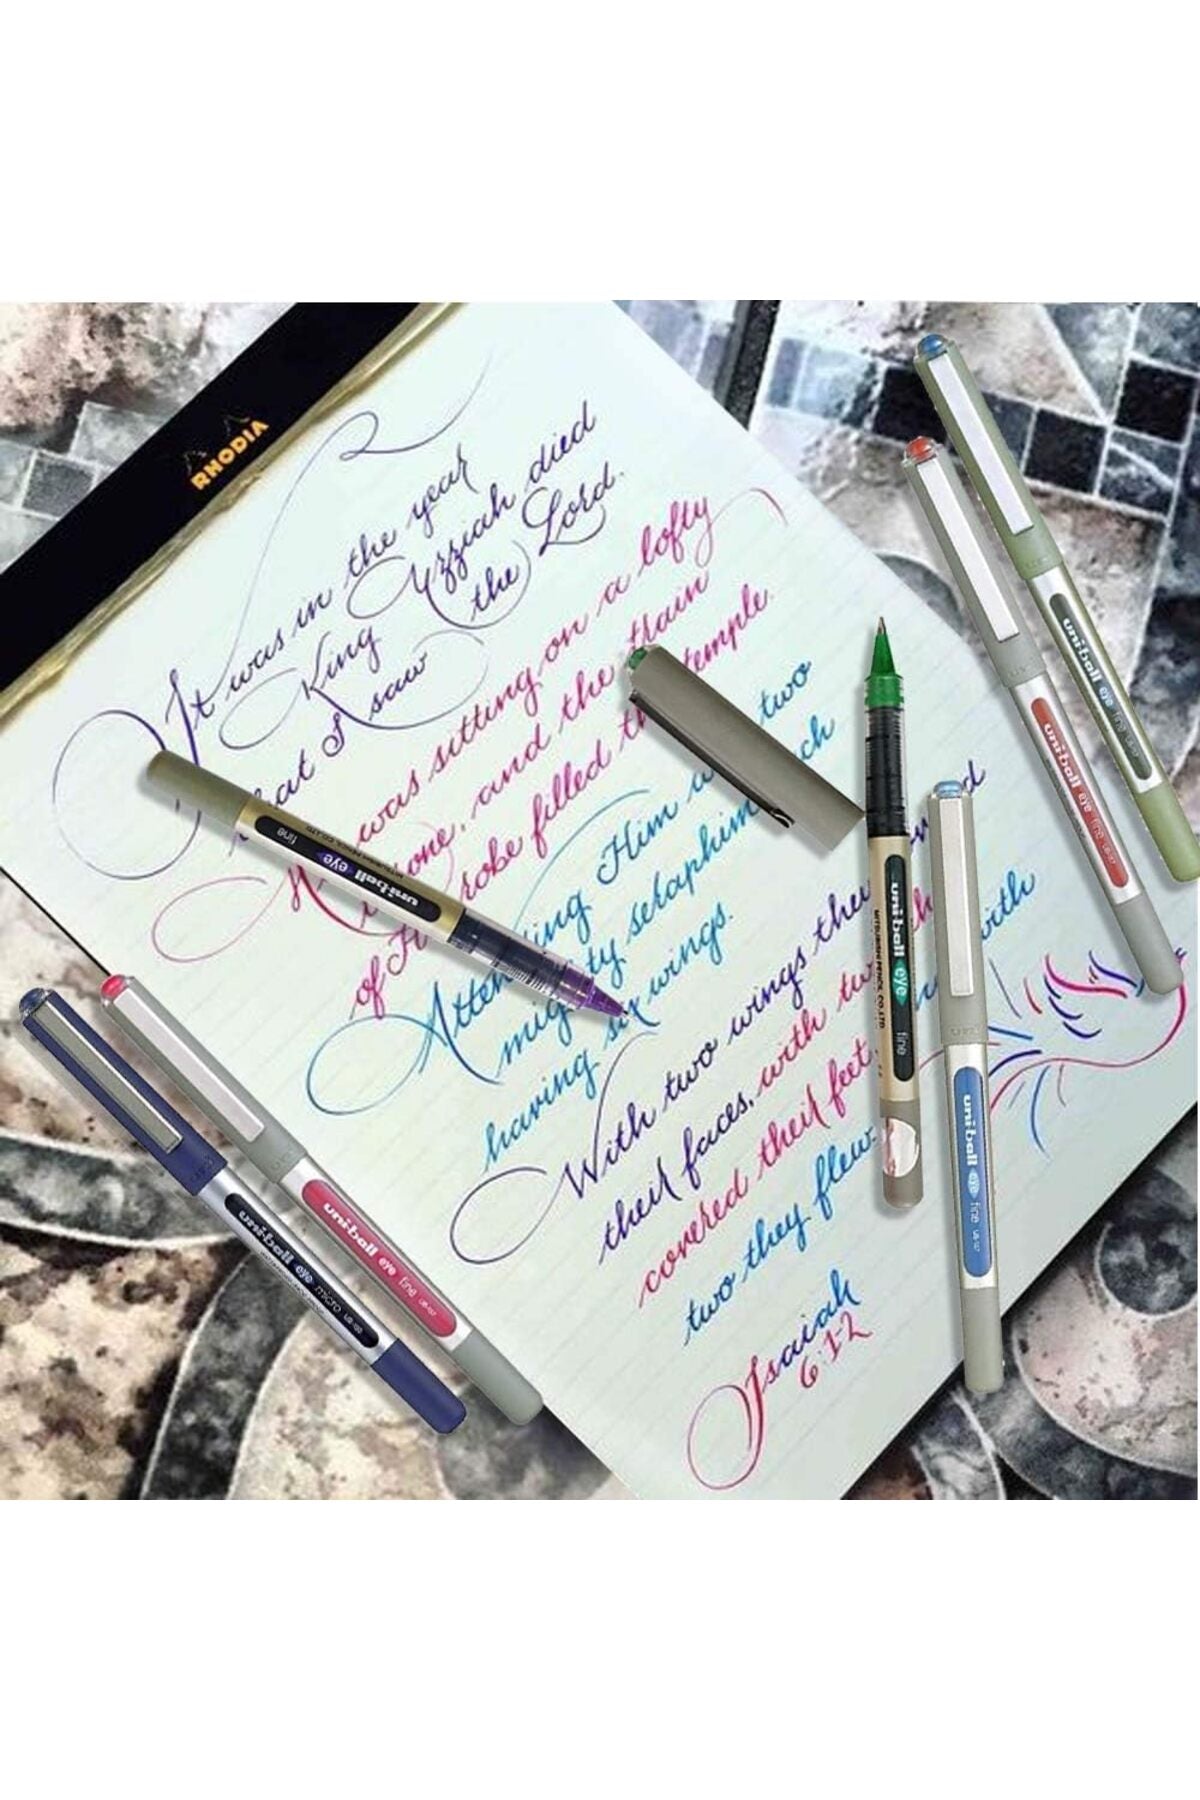 RHODIA
It was in the year
King Uzziah died
that I saw the Lord.
was sitting on a lofty
one, and the train
of robe filled temple.
Attending Him two
mighty seraphim
having six wings.
With two wings they
their faces, with
covered their feet, with
two they flew.
Isaiah
6:1-2
uni-ball eye fine
MITSUBISHI PENCIL CO., LTD.
uni-ball eye fine
MITSUBISHI PENCIL CO., LTD.
uni-ball eye fine UB-157
uni-ball eye fine UB-157
uni-ball eye fine UB-157
uni-ball eye micro UB-150
uni-ball eye fine UB-157